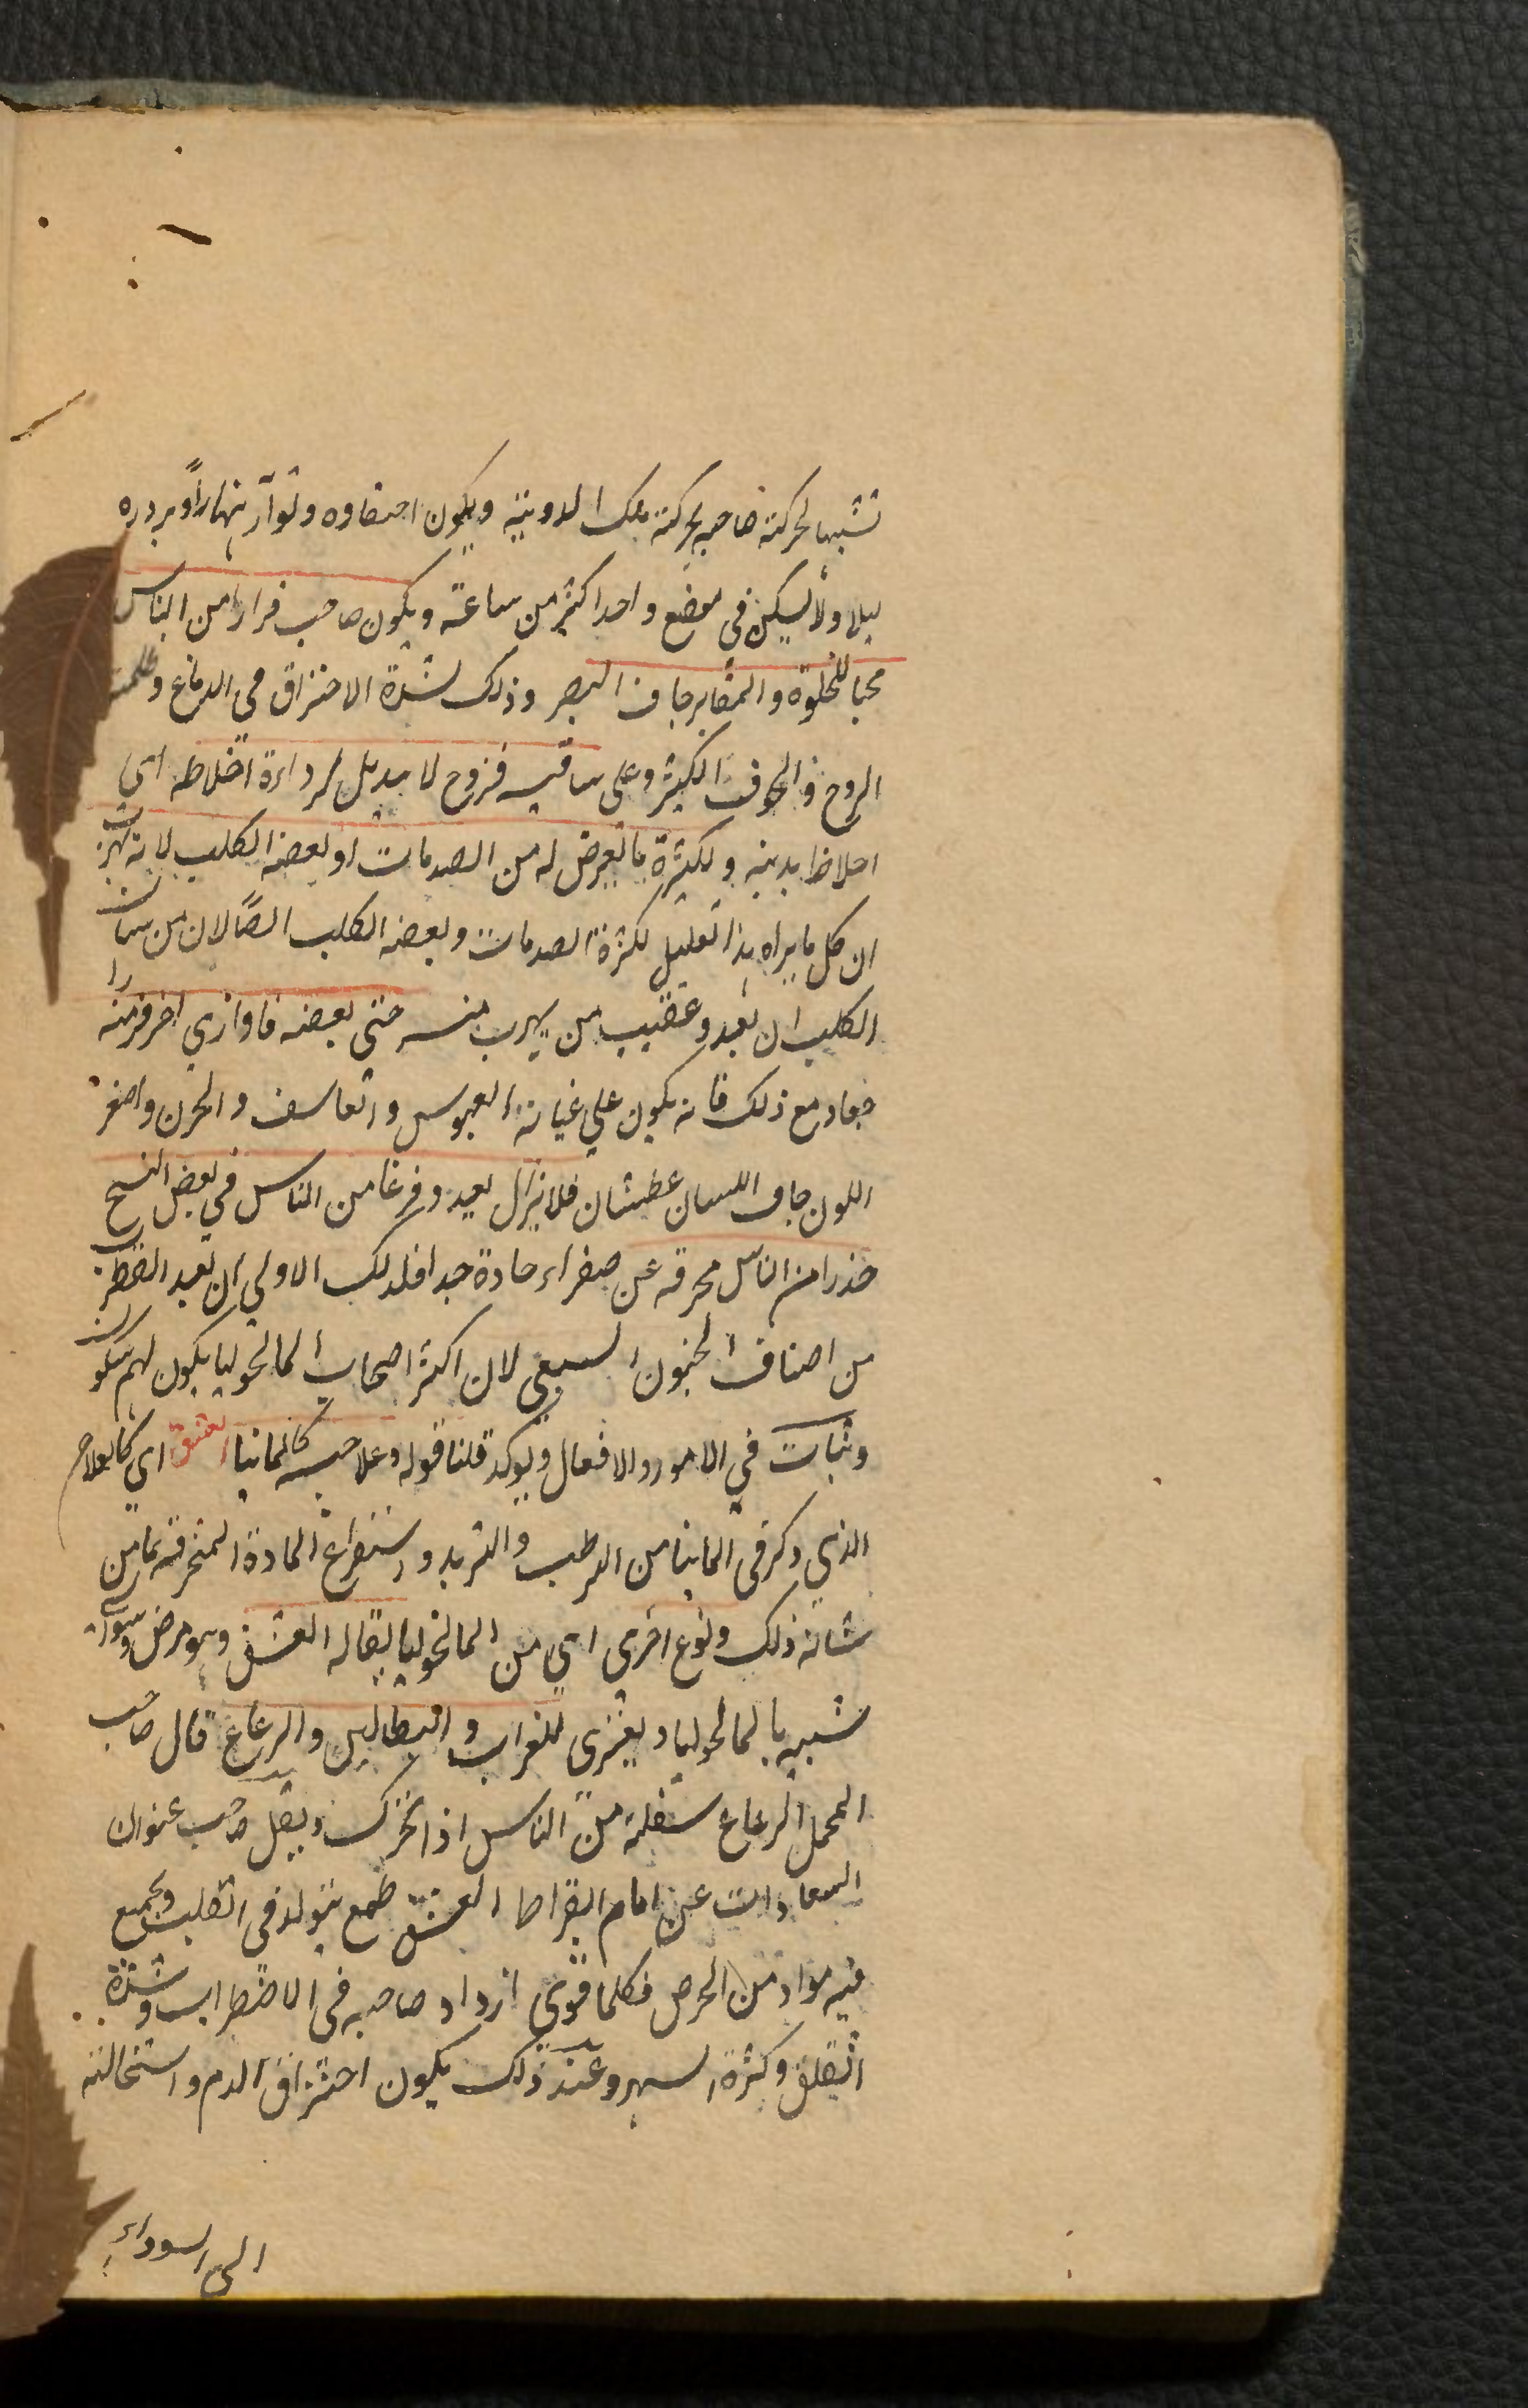 تشبيها لحركة صاحبه بحركة تلك الدويبة ويكون اختفاوه وتوآر نهاراً وبروره
ليلا ولا يسكن في موضع واحد اكثر من ساعة ويكون صاحب فرارا من الناس
محبا للخلوة والمقابر جاف البصر وذلك لشدة الاحتراق في الدماغ وظلمت
الروح والجوف الكثير وعلى ساقيه قروح لا يدمل لرداءة اخلاطه اي
اخلاط بدنه ولكثرة ما تعرض له من الصدمات او لعضه الكلب لانه يهرب
ان كل ما يراه هذا تعليل لكثرة الصدمات ولعضه الكلب ايضًا لان من شان
الكلب ان يعدو عقيب من يهرب منه حتى يعضه فاذا راى اخر فر منه
فعاد مع ذلك فانه يكون على غاية العبوس والتاسف والحزن واصفر
اللون جاف اللسان عطشان فلا يزال يعدو فزعا من الناس في بعض النسخ
حذرا من الناس محرقه عن صفراء حادة جدا فلذلك الاولى ان يعد القطرب
من اصناف الجنون السبعي لان اكثر اصحاب المالنخوليا يكون لهم سكون
وثبات في الامور والافعال ويوكد قلنا قوله وعلاجه كالمانيا العشق اي كالعلاج
الذي ذكر في المانيا من الترطيب والتبريد واستفراغ المادة المحترقة عما من
شانه ذلك ونوع اخرى اي من المالنخوليا يقال له العشق وهو مرض وسواسي
شبيه بالمالنخوليا ويعتري للعزاب والبطالين والرعاع قال صاحب
المجمل الرعاع سفلة من الناس اذا تحركت ونقل صاحب عنوان
السعادات عن امام البقراط العشق طمع يتولد في القلب ويجمع
فيه مواد من الحرص فكلما قوي ازداد صاحبه في الاضطراب وشدة
القلق وكثرة السهر وعند ذلك يكون احتراق الدم واستحالته
الى السوداء